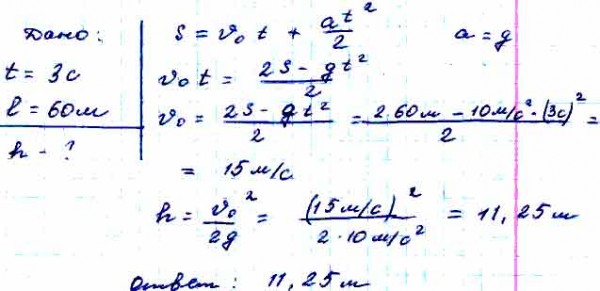 Дано:
t = 3с
l = 60м
h - ?
S = v₀t + at²/2   a = g
v₀t = (2S - gt²)/2
v₀ = (2S - gt²)/2 = (2·60м - 10м/с²·(3с)²)/2 =
= 15 м/с
h = v₀²/2g = (15 м/с)²/(2·10 м/с²) = 11,25 м
ответ: 11,25 м